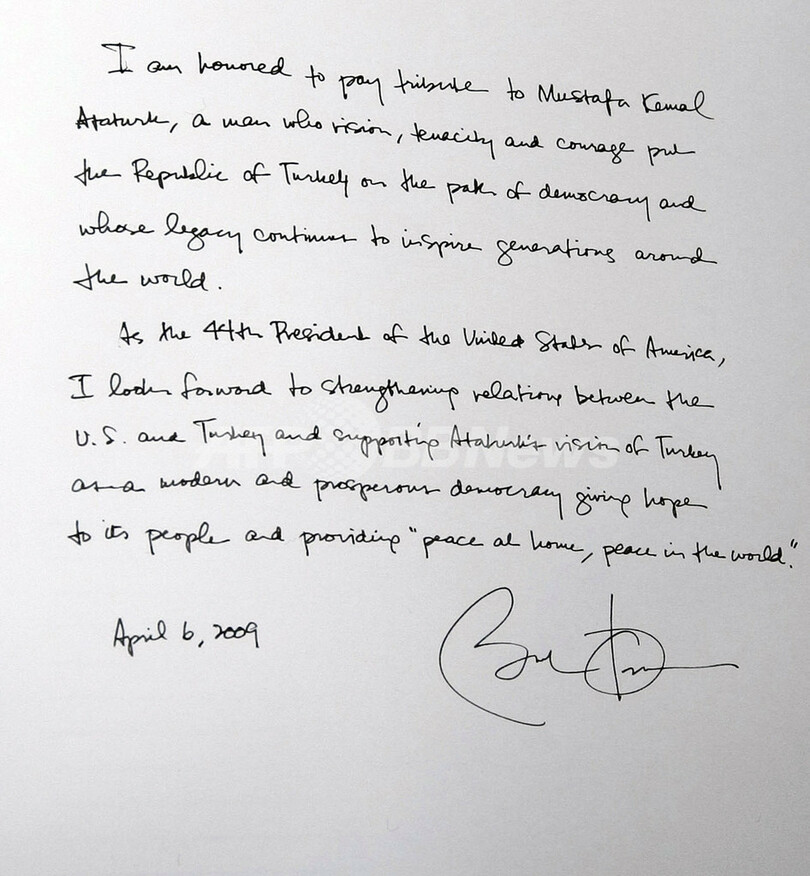 I am honored to pay tribute to Mustafa Kemal
Ataturk, a man who vision, tenacity and courage put
the Republic of Turkey on the path of democracy and
whose legacy continues to inspire generations around
the world.
As the 44th President of the United States of America,
I look forward to strengthening relations between the
U.S. and Turkey and supporting Ataturk's vision of Turkey
as a modern and prosperous democracy giving hope
to its people and providing "peace at home, peace in the world."
April 6, 2009
AFP BBNews